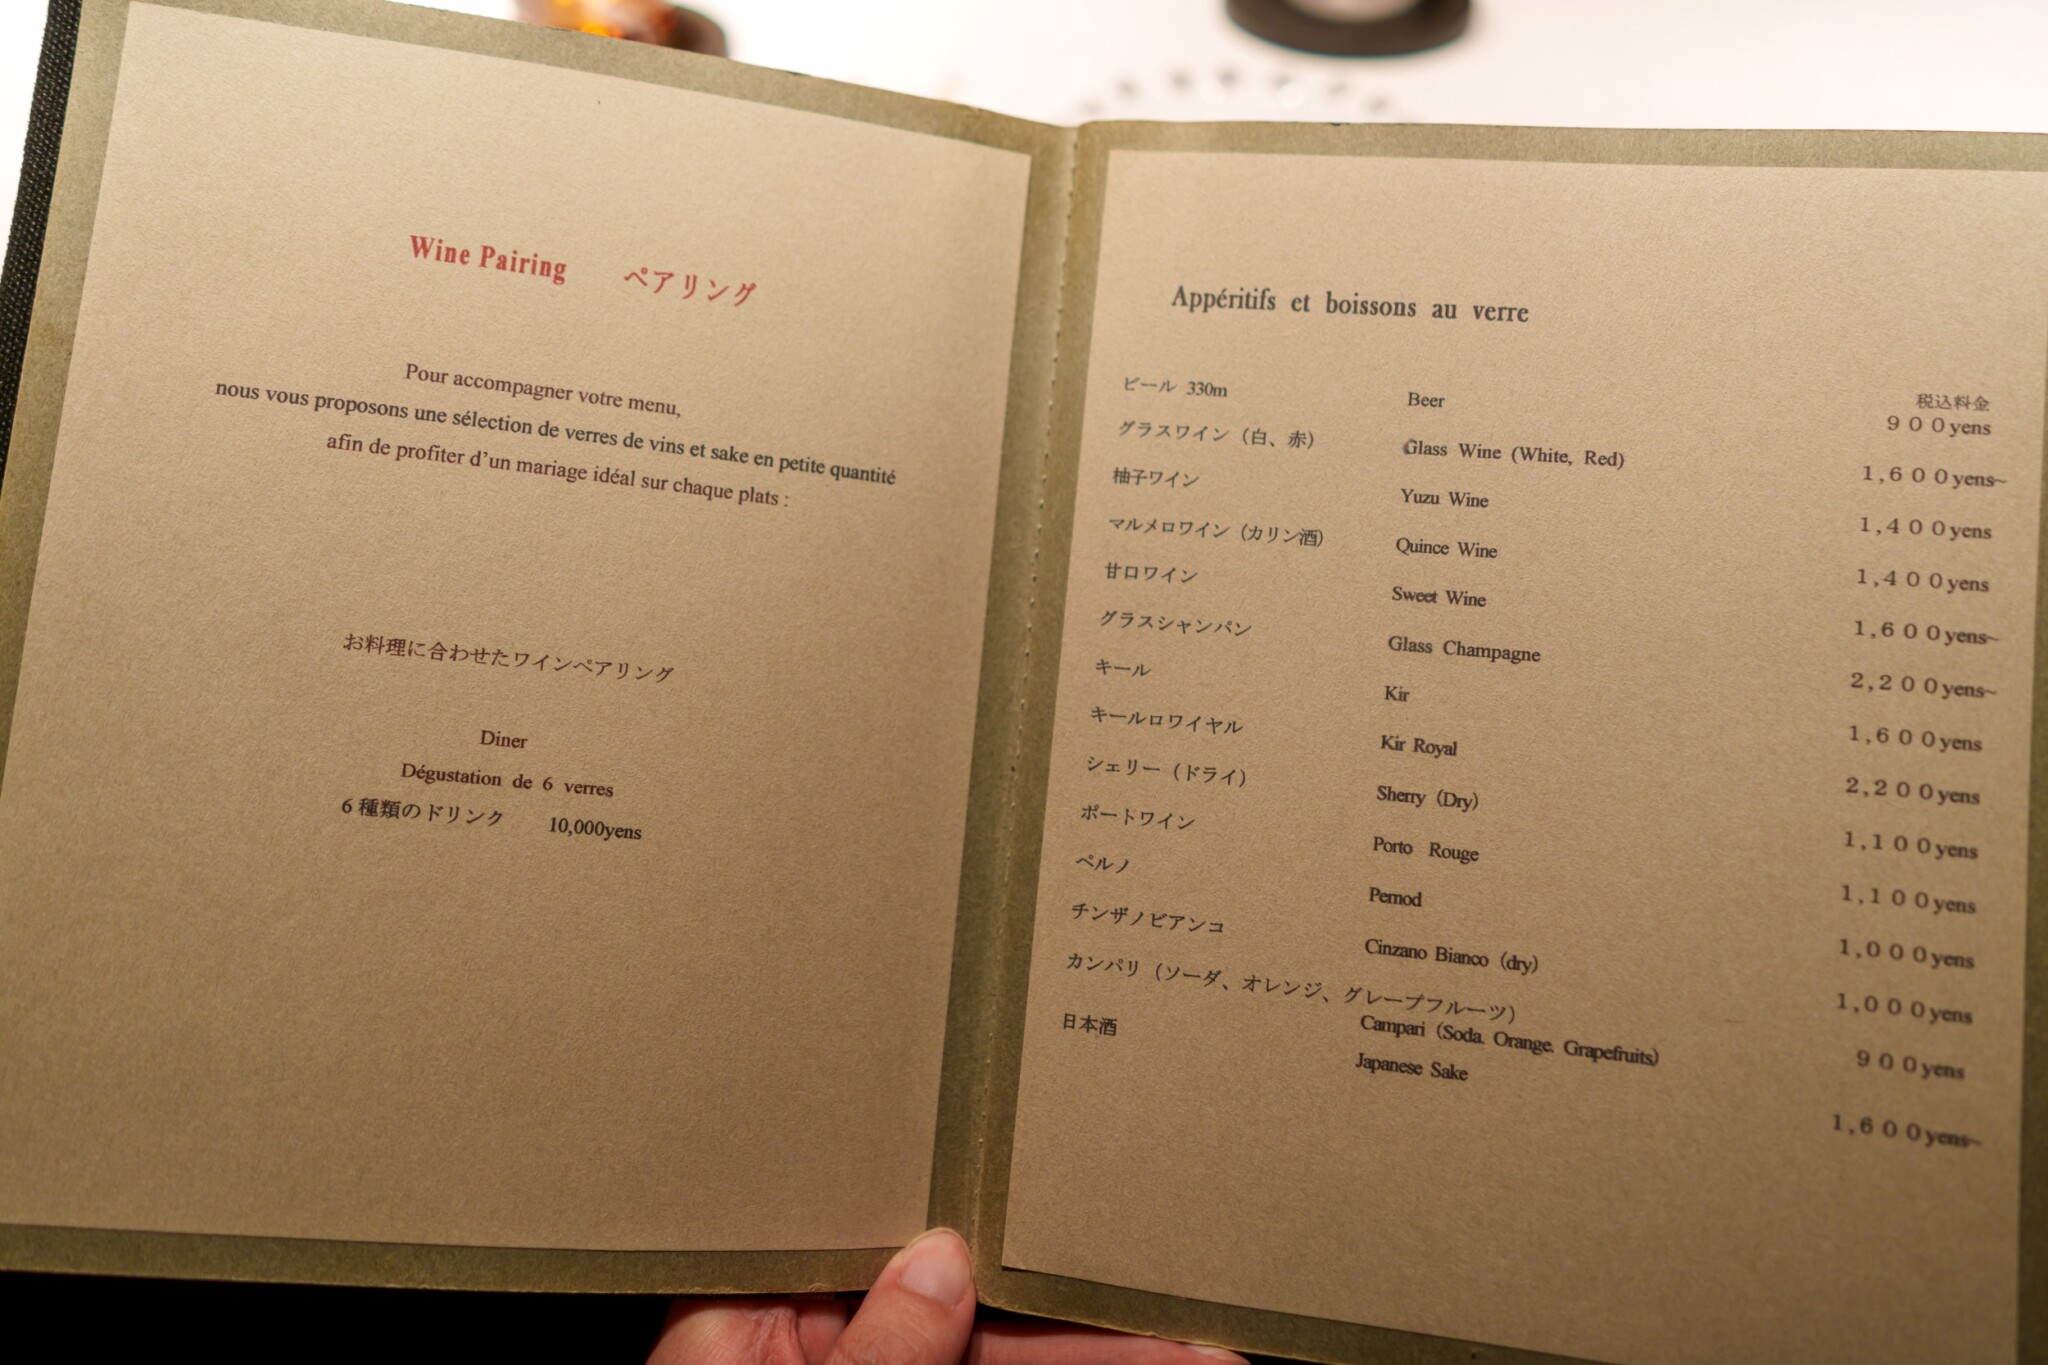 Wine Pairing ペアリング
Pour accompagner votre menu,
nous vous proposons une sélection de verres de vins et sake en petite quantité
afin de profiter d'un mariage idéal sur chaque plats :
お料理に合わせたワインペアリング
Diner
Dégustation de 6 verres
6種類のドリンク 10,000yens
Appéritifs et boissons au verre
税込料金
ビール 330m Beer 900yens
グラスワイン（白、赤） Glass Wine (White, Red) 1,600yens~
柚子ワイン Yuzu Wine 1,400yens
マルメロワイン（カリン酒） Quince Wine 1,400yens
甘口ワイン Sweet Wine 1,600yens~
グラスシャンパン Glass Champagne 2,200yens~
キール Kir 1,600yens
キールロワイヤル Kir Royal 2,200yens
シェリー（ドライ） Sherry（Dry） 1,100yens
ポートワイン Porto Rouge 1,100yens
ペルノ Pernod 1,000yens
チンザノビアンコ Cinzano Bianco（dry） 1,000yens
カンパリ（ソーダ、オレンジ、グレープフルーツ）
Campari（Soda. Orange. Grapefruits） 900yens
日本酒 Japanese Sake 1,600yens~